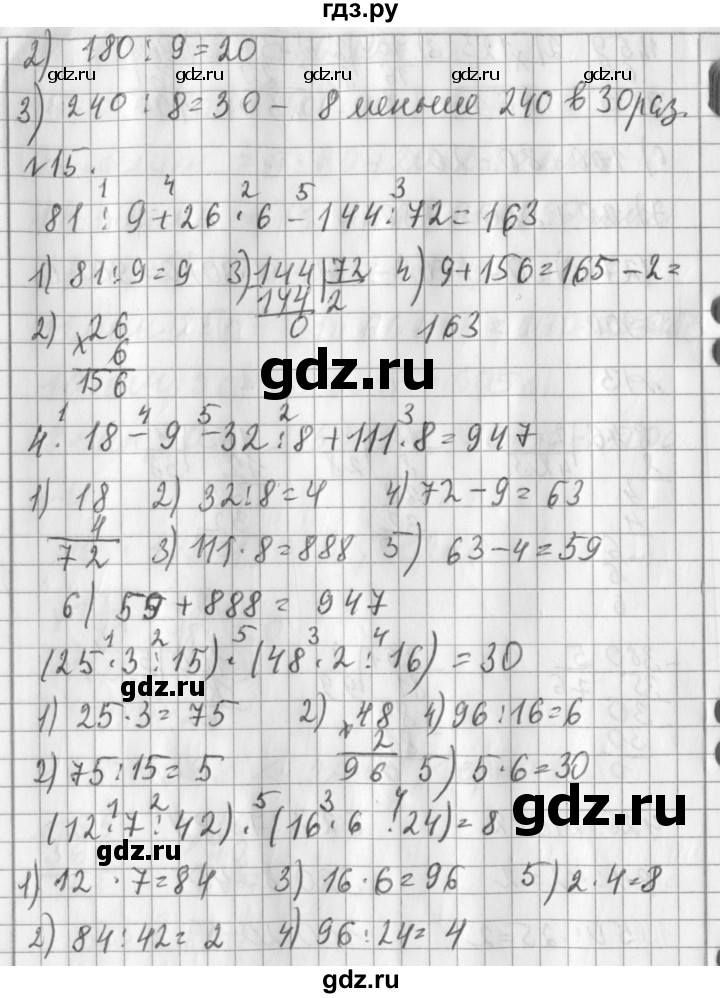 гдз.ру
2) 180 : 9 = 20
gdz.ru gdz.ru gdz.ru
3) 240 : 8 = 30 - 8 меньше 240 в 30 раз.
№15.
gdz.ru gdz.ru gdz.ru
1 4 2 5 3
81 : 9 + 26 · 6 - 144 : 72 = 163
gdz.ru gdz.ru gdz.ru
1) 81 : 9 = 9 3) 144 | 72 4) 9 + 156 = 165 - 2 =
144 2
2) 26 0 163
× 6
156
gdz.ru gdz.ru
1 4 5 2 3
4 · 18 - 9 - 32 : 8 + 111 · 8 = 947
gdz.ru gdz.ru gdz.ru
1) 18 2) 32 : 8 = 4 4) 72 - 9 = 63
4
72 3) 111 · 8 = 888 5) 63 - 4 = 59
gdz.ru gdz.ru gdz.ru
6) 59 + 888 = 947
1 2 5 3 4
(25 · 3 : 15) · (48 · 2 : 16) = 30
gdz.ru gdz.ru gdz.ru
1) 25 · 3 = 75 2) 48 4) 96 : 16 = 6
× 2
2) 75 : 15 = 5 96 5) 5 · 6 = 30
gdz.ru gdz.ru gdz.ru
1 2 5 3 4
(12 · 7 : 42) · (16 · 6 : 24) = 8
gdz.ru gdz.ru
1) 12 · 7 = 84 3) 16 · 6 = 96 5) 2 · 4 = 8
gdz.ru gdz.ru gdz.ru
2) 84 : 42 = 2 4) 96 : 24 = 4
gdz.ru